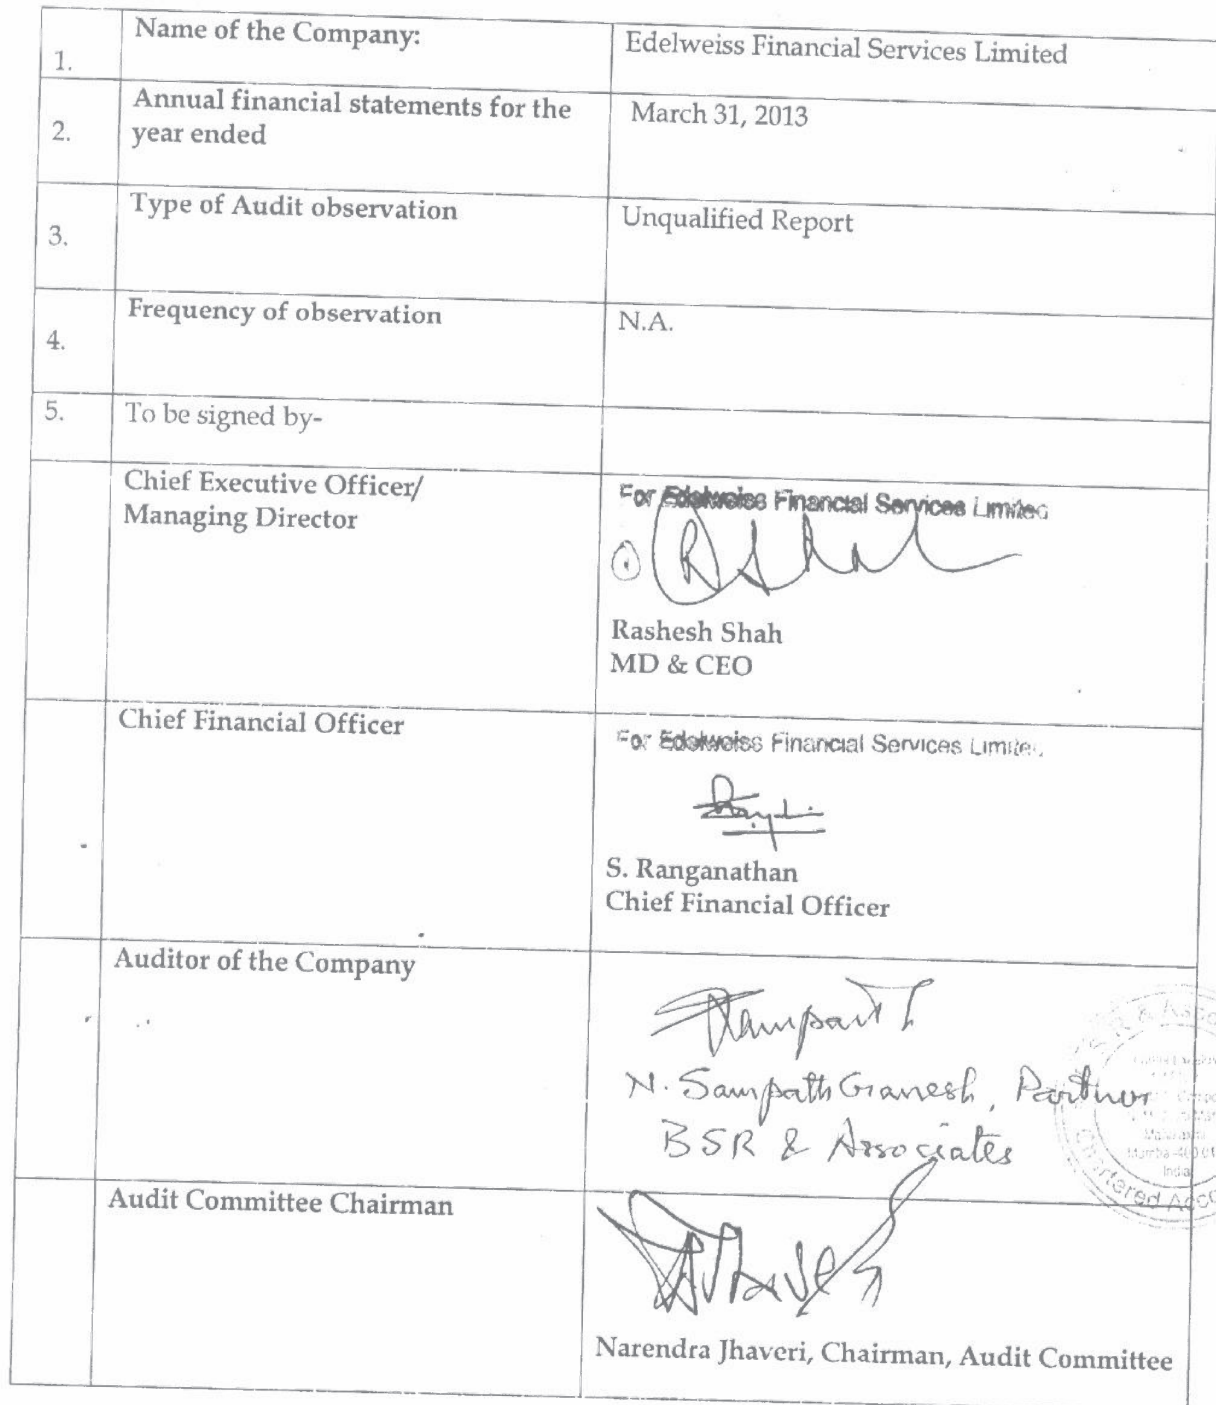 1.
Name of the Company:
Edelweiss Financial Services Limited
2.
Annual financial statements for the
year ended
March 31, 2013
3.
Type of Audit observation
Unqualified Report
4.
Frequency of observation
N.A.
5.
To be signed by-
Chief Executive Officer/
Managing Director
For Edelweiss Financial Services Limited
R Shah
Rashesh Shah
MD & CEO
Chief Financial Officer
For Edelweiss Financial Services Limited
S. Ranganathan
Chief Financial Officer
Auditor of the Company
N. Sampath Ganesh, Partner
BSR & Associates
India
Audit Committee Chairman
Narendra Jhaveri, Chairman, Audit Committee